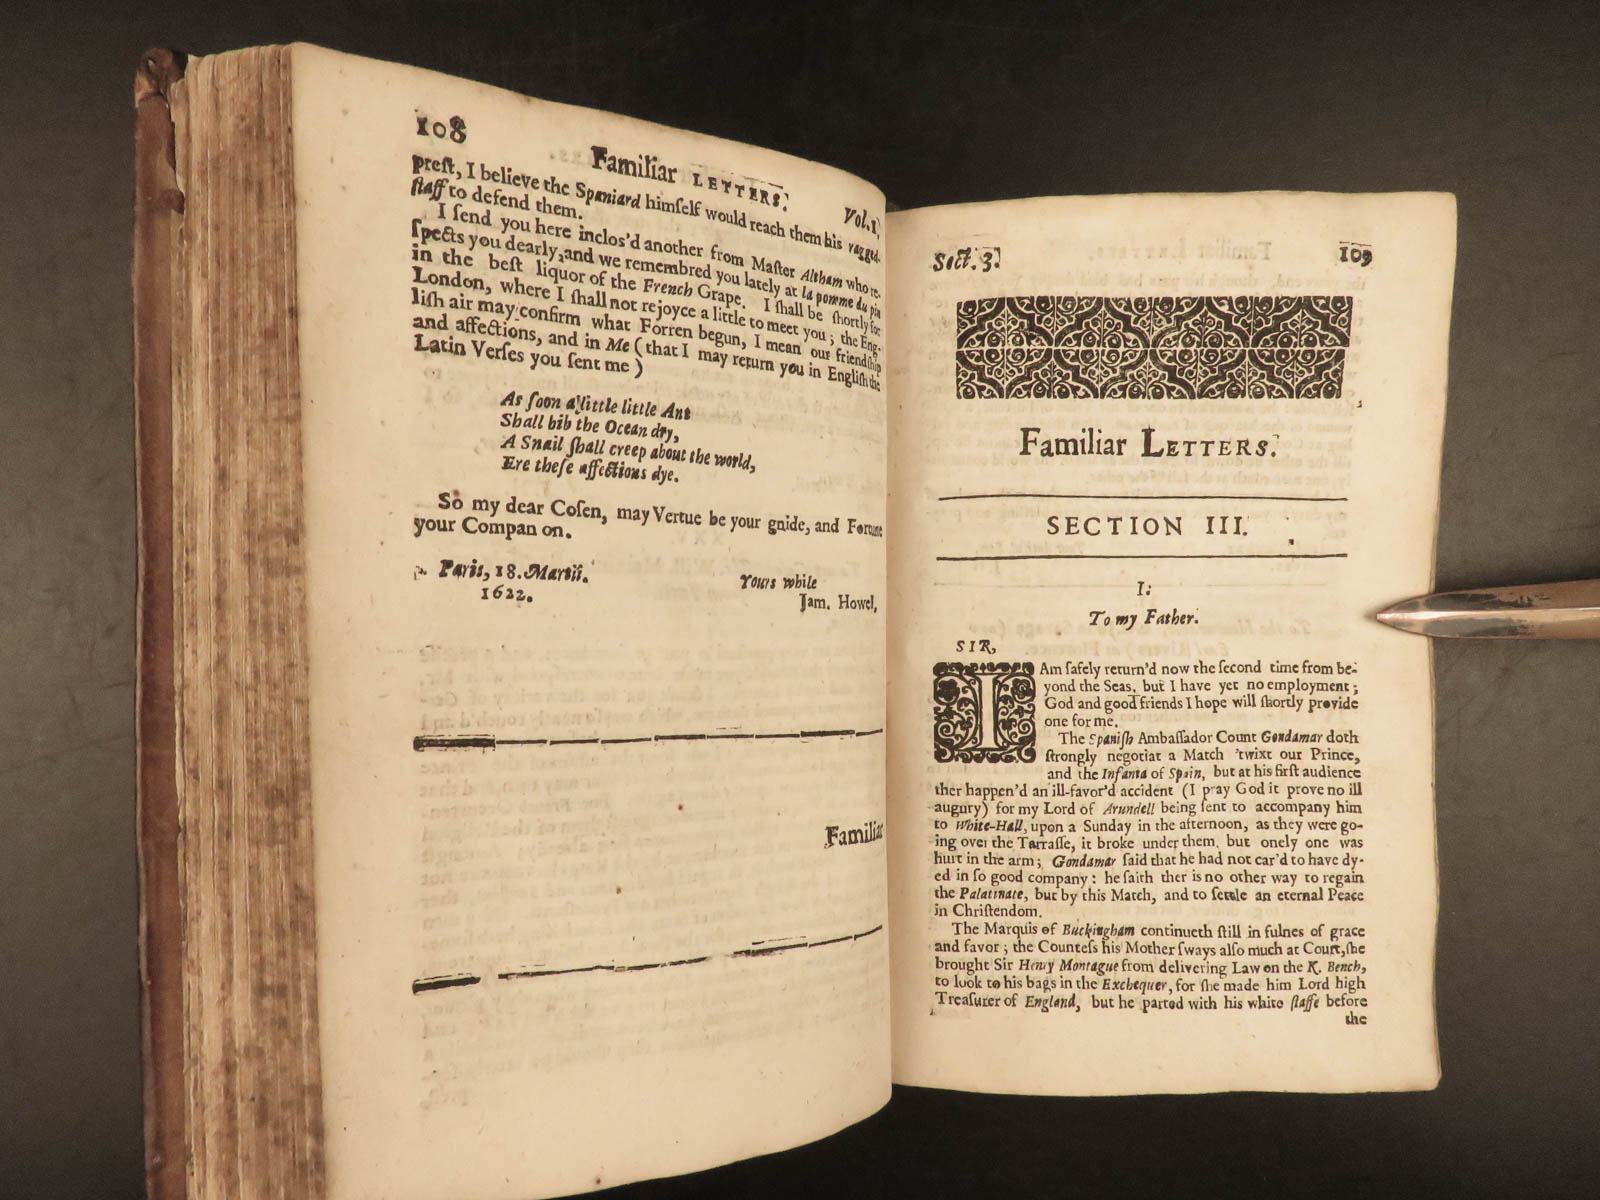 108
Familiar LETTERS. Vol.1,
prest, I believe the Spaniard himself would reach them his ragged-
staff to defend them.
I send you here inclos'd another from Master Altham who re-
spects you dearly, and we remembred you lately at la pomme du pin
in the best liquor of the French Grape. I shall be shortly for
London, where I shall not rejoyce a little to meet you; the Eng-
lish air may confirm what Forren begun, I mean our friendship
and affections, and in Me (that I may return you in English the
Latin Verses you sent me)
As soon a little little Ant
Shall bib the Ocean dry,
A Snail shall creep about the world,
Ere these affections dye.
So my dear Cosen, may Vertue be your gnide, and Fortune
your Compan on.
Paris, 18. Martii.
1622.
Yours while
Jam. Howel,
Familiar
Sect. 3.
109
Familiar LETTERS.
SECTION III.
I:
To my Father.
SIR,
I Am safely return'd now the second time from be-
yond the Seas, but I have yet no employment;
God and good friends I hope will shortly provide
one for me.
The Spanish Ambassador Count Gondamar doth
strongly negotiat a Match 'twixt our Prince,
and the Infanta of Spain, but at his first audience
ther happen'd an ill-favor'd accident (I pray God it prove no ill
augury) for my Lord of Arundell being sent to accompany him
to White-Hall, upon a Sunday in the afternoon, as they were go-
ing over the Tarrasse, it broke under them, but onely one was
hurt in the arm; Gondamar said that he had not car'd to have dy-
ed in so good company: he saith ther is no other way to regain
the Palatinate, but by this Match, and to settle an eternal Peace
in Christendom.
The Marquis of Buckingham continueth still in fulnes of grace
and favor; the Countess his Mother sways also much at Court, she
brought Sir Henry Montague from delivering Law on the K. Bench,
to look to his bags in the Exchequer, for she made him Lord high
Treasurer of England, but he parted with his white staffe before
the